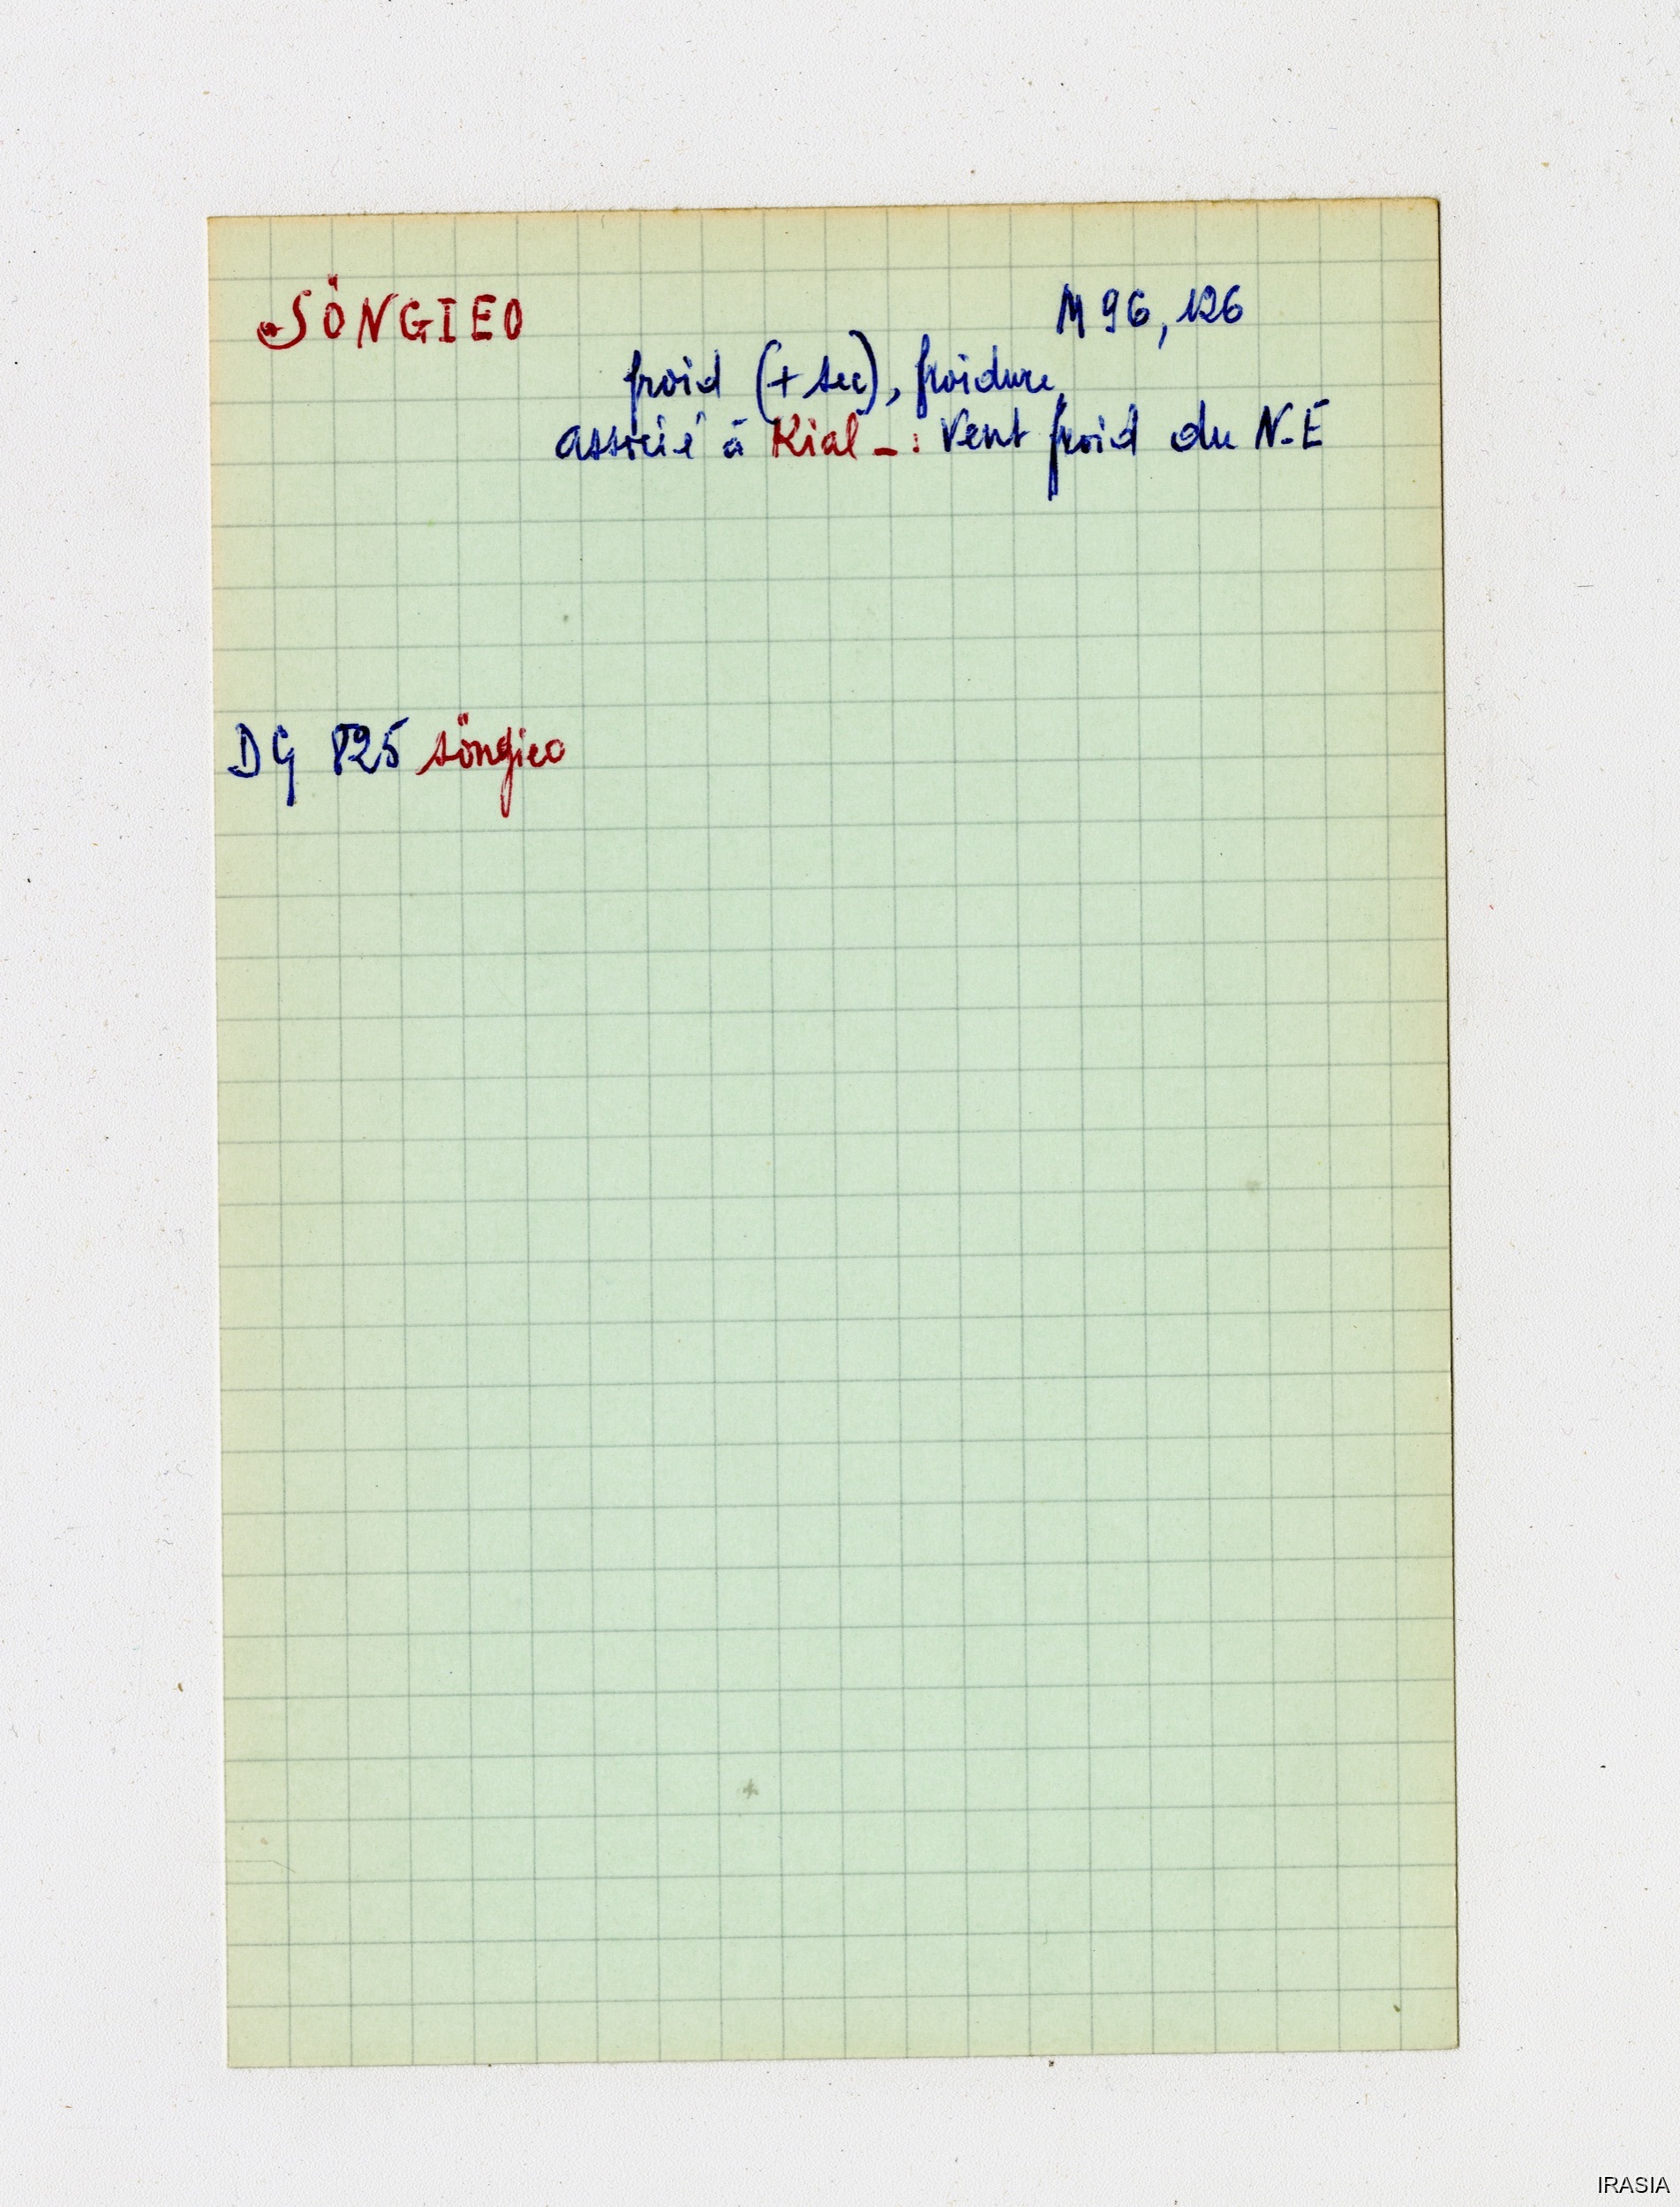 SÖNGIEO
M 96, 126
froid (+ sec), froidure
associé à Kial _ : Vent froid du N-E
DG 825 söngieo
IRASIA